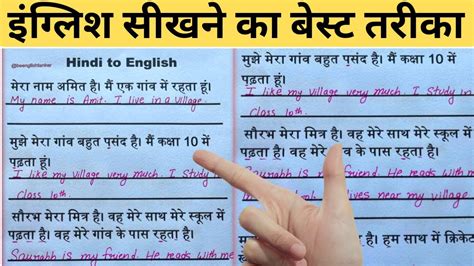 इंग्लिश सीखने का बेस्ट तरीका
Hindi to English
मेरा नाम अमित है। मैं एक गांव में रहता हूं।
My name is Amit. I live in a village.
मुझे मेरा गांव बहुत पसंद है। मैं कक्षा 10 में
पढ़ता हूं।
I like my village very much. I Study in
Class 10th.
सौरभ मेरा मित्र है। वह मेरे साथ मेरे स्कूल में
पढ़ता है। वह मेरे गांव के पास रहता है।
Saurabh is my friend. He reads with me
मुझे मेरा गांव बहुत पसंद है। मैं कक्षा 10 में
पढ़ता हूं।
I like my village very much. I Study in
Class 10th.
सौरभ मेरा मित्र है। वह मेरे साथ मेरे स्कूल में
पढ़ता है। वह मेरे गांव के पास रहता है।
Saurabh is my friend. He reads with me
lives near my village
है। हम साथ में क्रिकेट